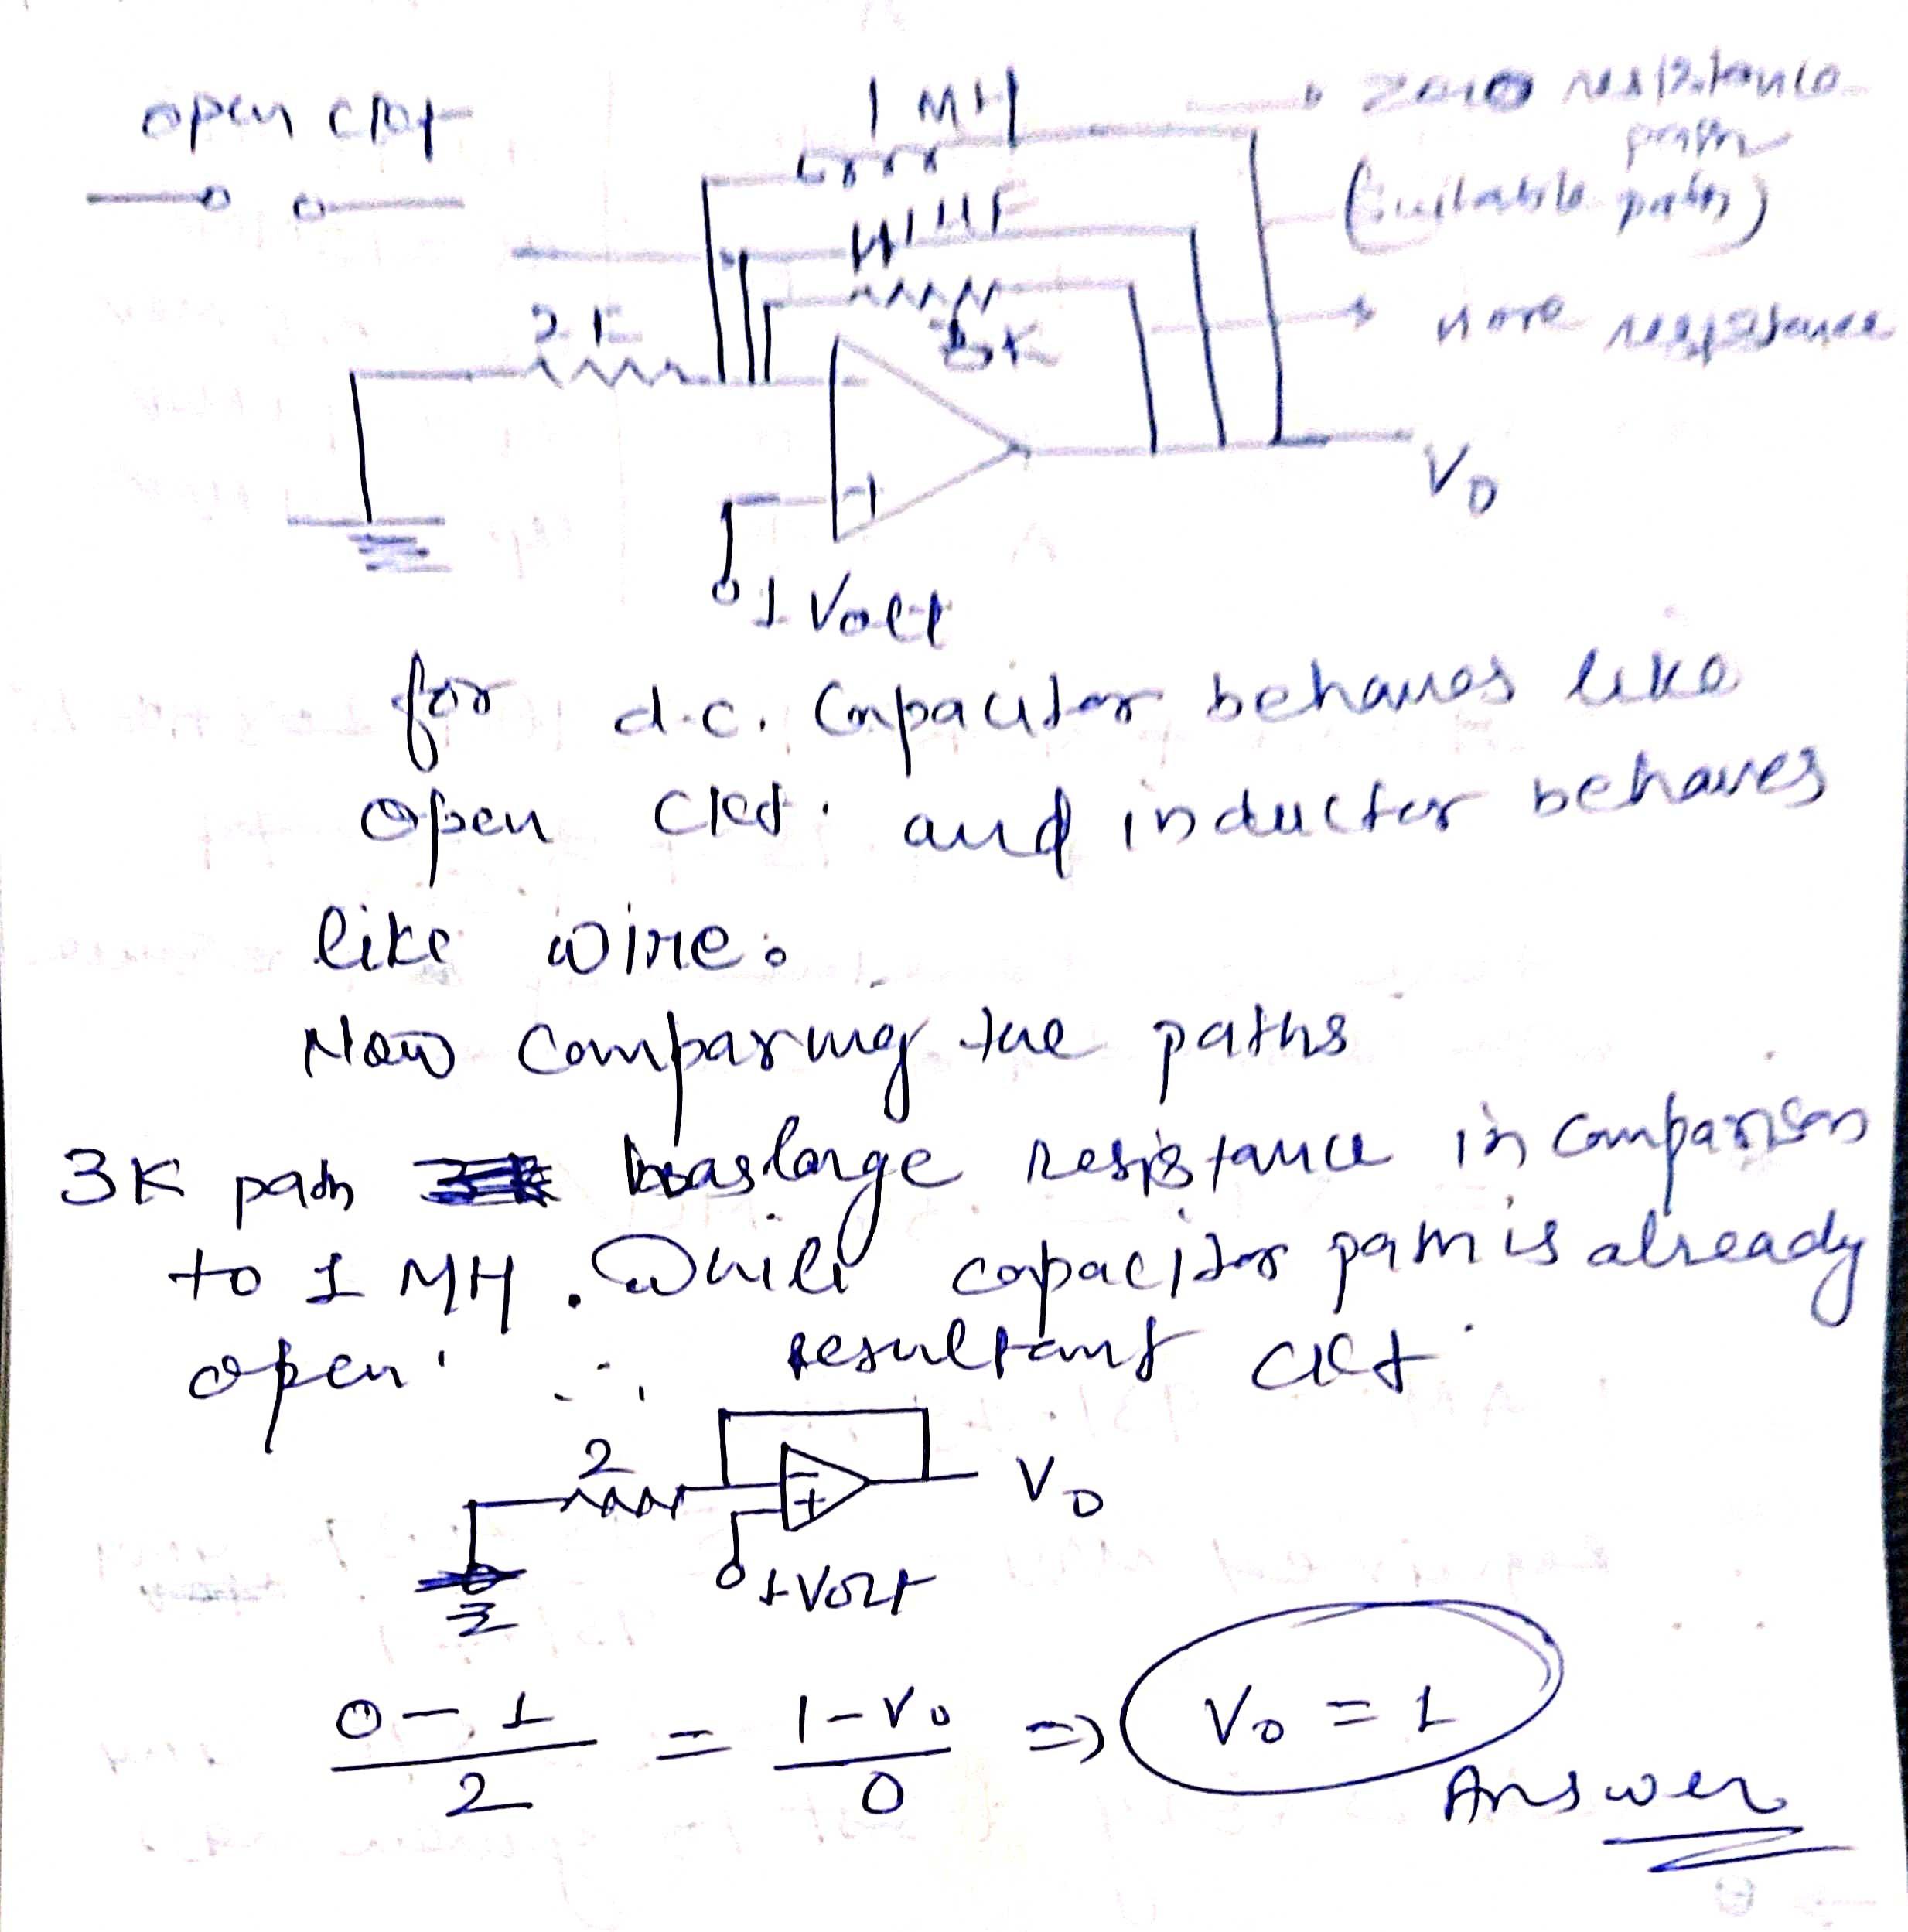 open ckt
1 MH
zero resistance
path
(suitable path)
1 μF
3K
more resistance
2K
-
+
Vo
1 Volt
for d.c. Capacitor behaves like
open ckt. and inductor behaves
like wire.
Now Comparing the paths
3K path has large resistance in comparison
to 1 MH. While capacitor path is already
open. ∴ resultant ckt.
2
-
+
Vo
1 Volt
(0 - 1)/2 = (1 - Vo)/0 ⇒ Vo = 1
Answer